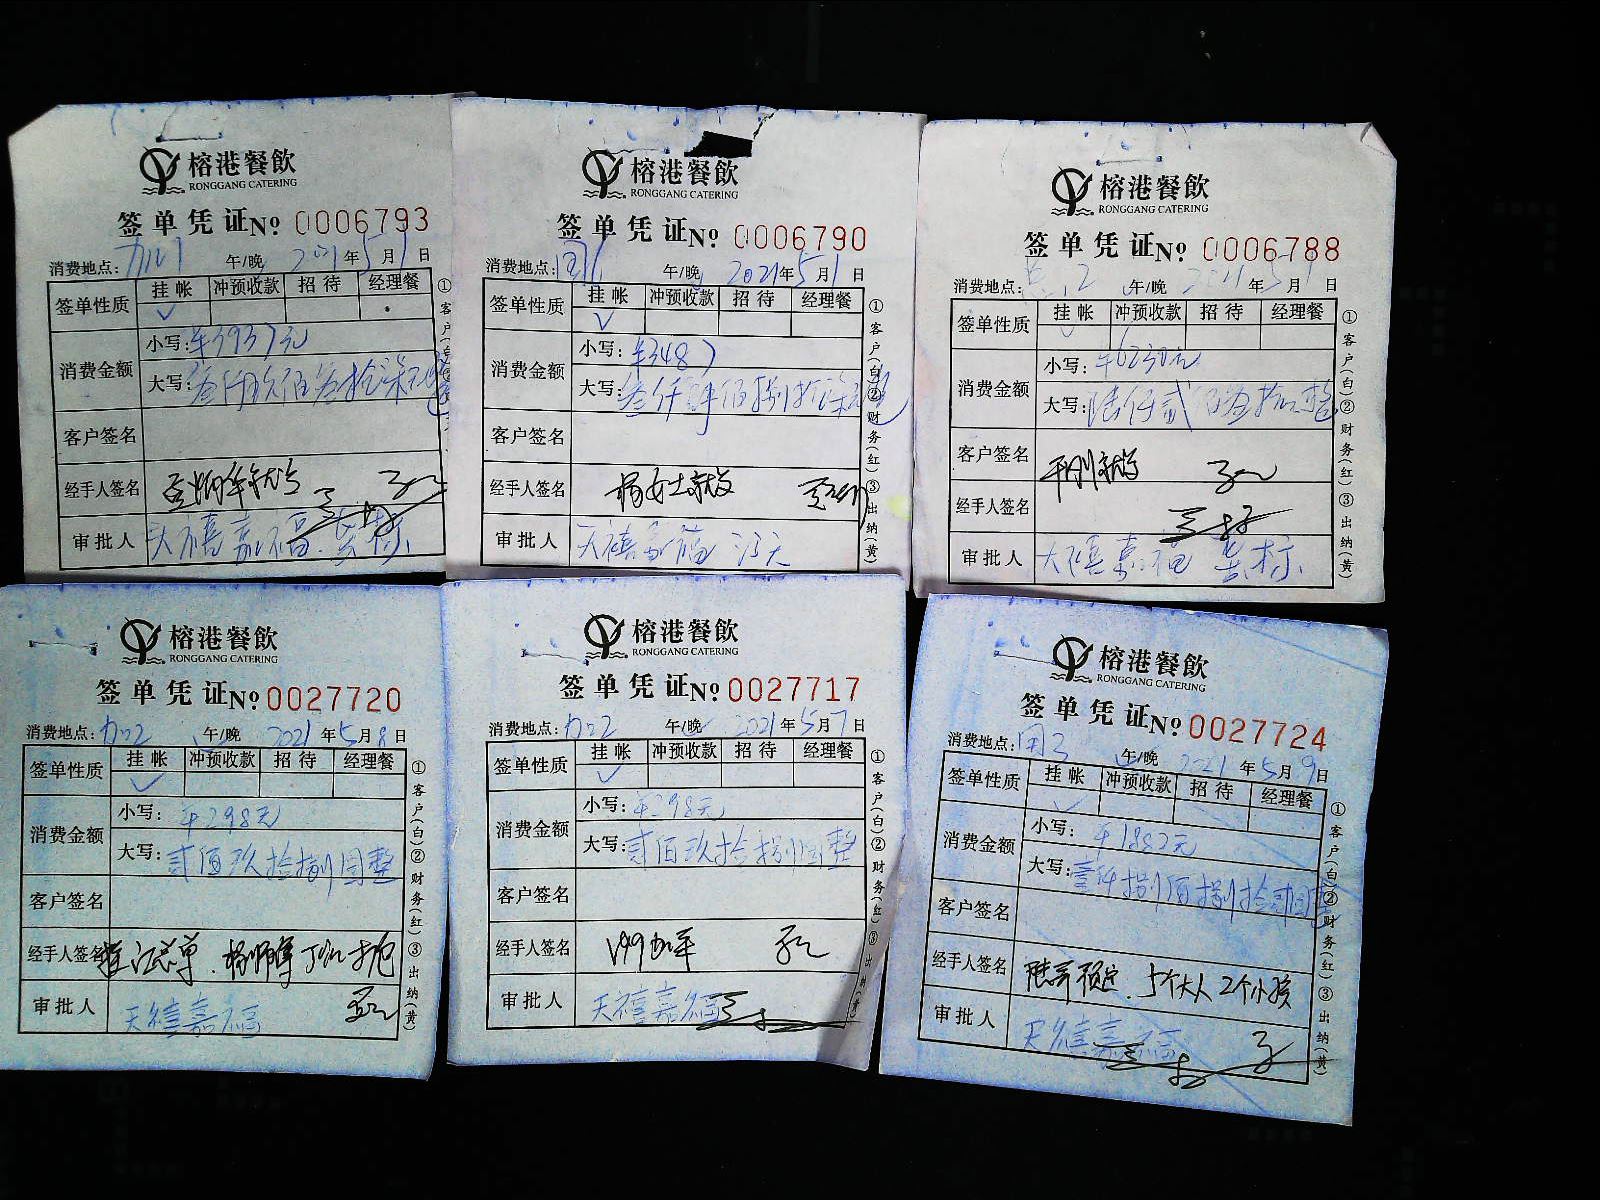 榕港餐飲
RONGGANG CATERING
签单凭证№ 0006793
消费地点: 午/晚 2021年5月1日
签单性质 挂帐 冲预收款 招待 经理餐
✓
消费金额 小写:¥3937元
大写:叁仟玖佰叁拾柒元整
客户签名
经手人签名
审批人 天禧嘉福
①客户(白)②财务(红)③出纳(黄)
榕港餐飲
RONGGANG CATERING
签单凭证№ 0006790
消费地点: 午/晚 2021年5月1日
签单性质 挂帐 冲预收款 招待 经理餐
✓
消费金额 小写:¥3487
大写:叁仟肆佰捌拾柒元整
客户签名
经手人签名 杨女士
审批人 天禧嘉福
①客户(白)②财务(红)③出纳(黄)
榕港餐飲
RONGGANG CATERING
签单凭证№ 0006788
消费地点: 午/晚 2021年5月1日
签单性质 挂帐 冲预收款 招待 经理餐
✓
消费金额 小写:¥6230元
大写:陆仟贰佰叁拾元整
客户签名
经手人签名
审批人 天禧嘉福
①客户(白)②财务(红)③出纳(黄)
榕港餐飲
RONGGANG CATERING
签单凭证№ 0027720
消费地点:加02 午/晚 2021年5月8日
签单性质 挂帐 冲预收款 招待 经理餐
✓
消费金额 小写:¥298元
大写:贰佰玖拾捌圆整
客户签名
经手人签名
审批人 天禧嘉福
①客户(白)②财务(红)③出纳(黄)
榕港餐飲
RONGGANG CATERING
签单凭证№ 0027717
消费地点:加02 午/晚 2021年5月7日
签单性质 挂帐 冲预收款 招待 经理餐
✓
消费金额 小写:¥298元
大写:贰佰玖拾捌圆整
客户签名
经手人签名
审批人 天禧嘉福
①客户(白)②财务(红)③出纳(黄)
榕港餐飲
RONGGANG CATERING
签单凭证№ 0027724
消费地点: 午/晚 2021年5月9日
签单性质 挂帐 冲预收款 招待 经理餐
✓
消费金额 小写:¥1882元
大写:壹仟捌佰捌拾贰圆整
客户签名
经手人签名 预定、5个大人 2个小孩
审批人 天禧嘉福
①客户(白)②财务(红)③出纳(黄)